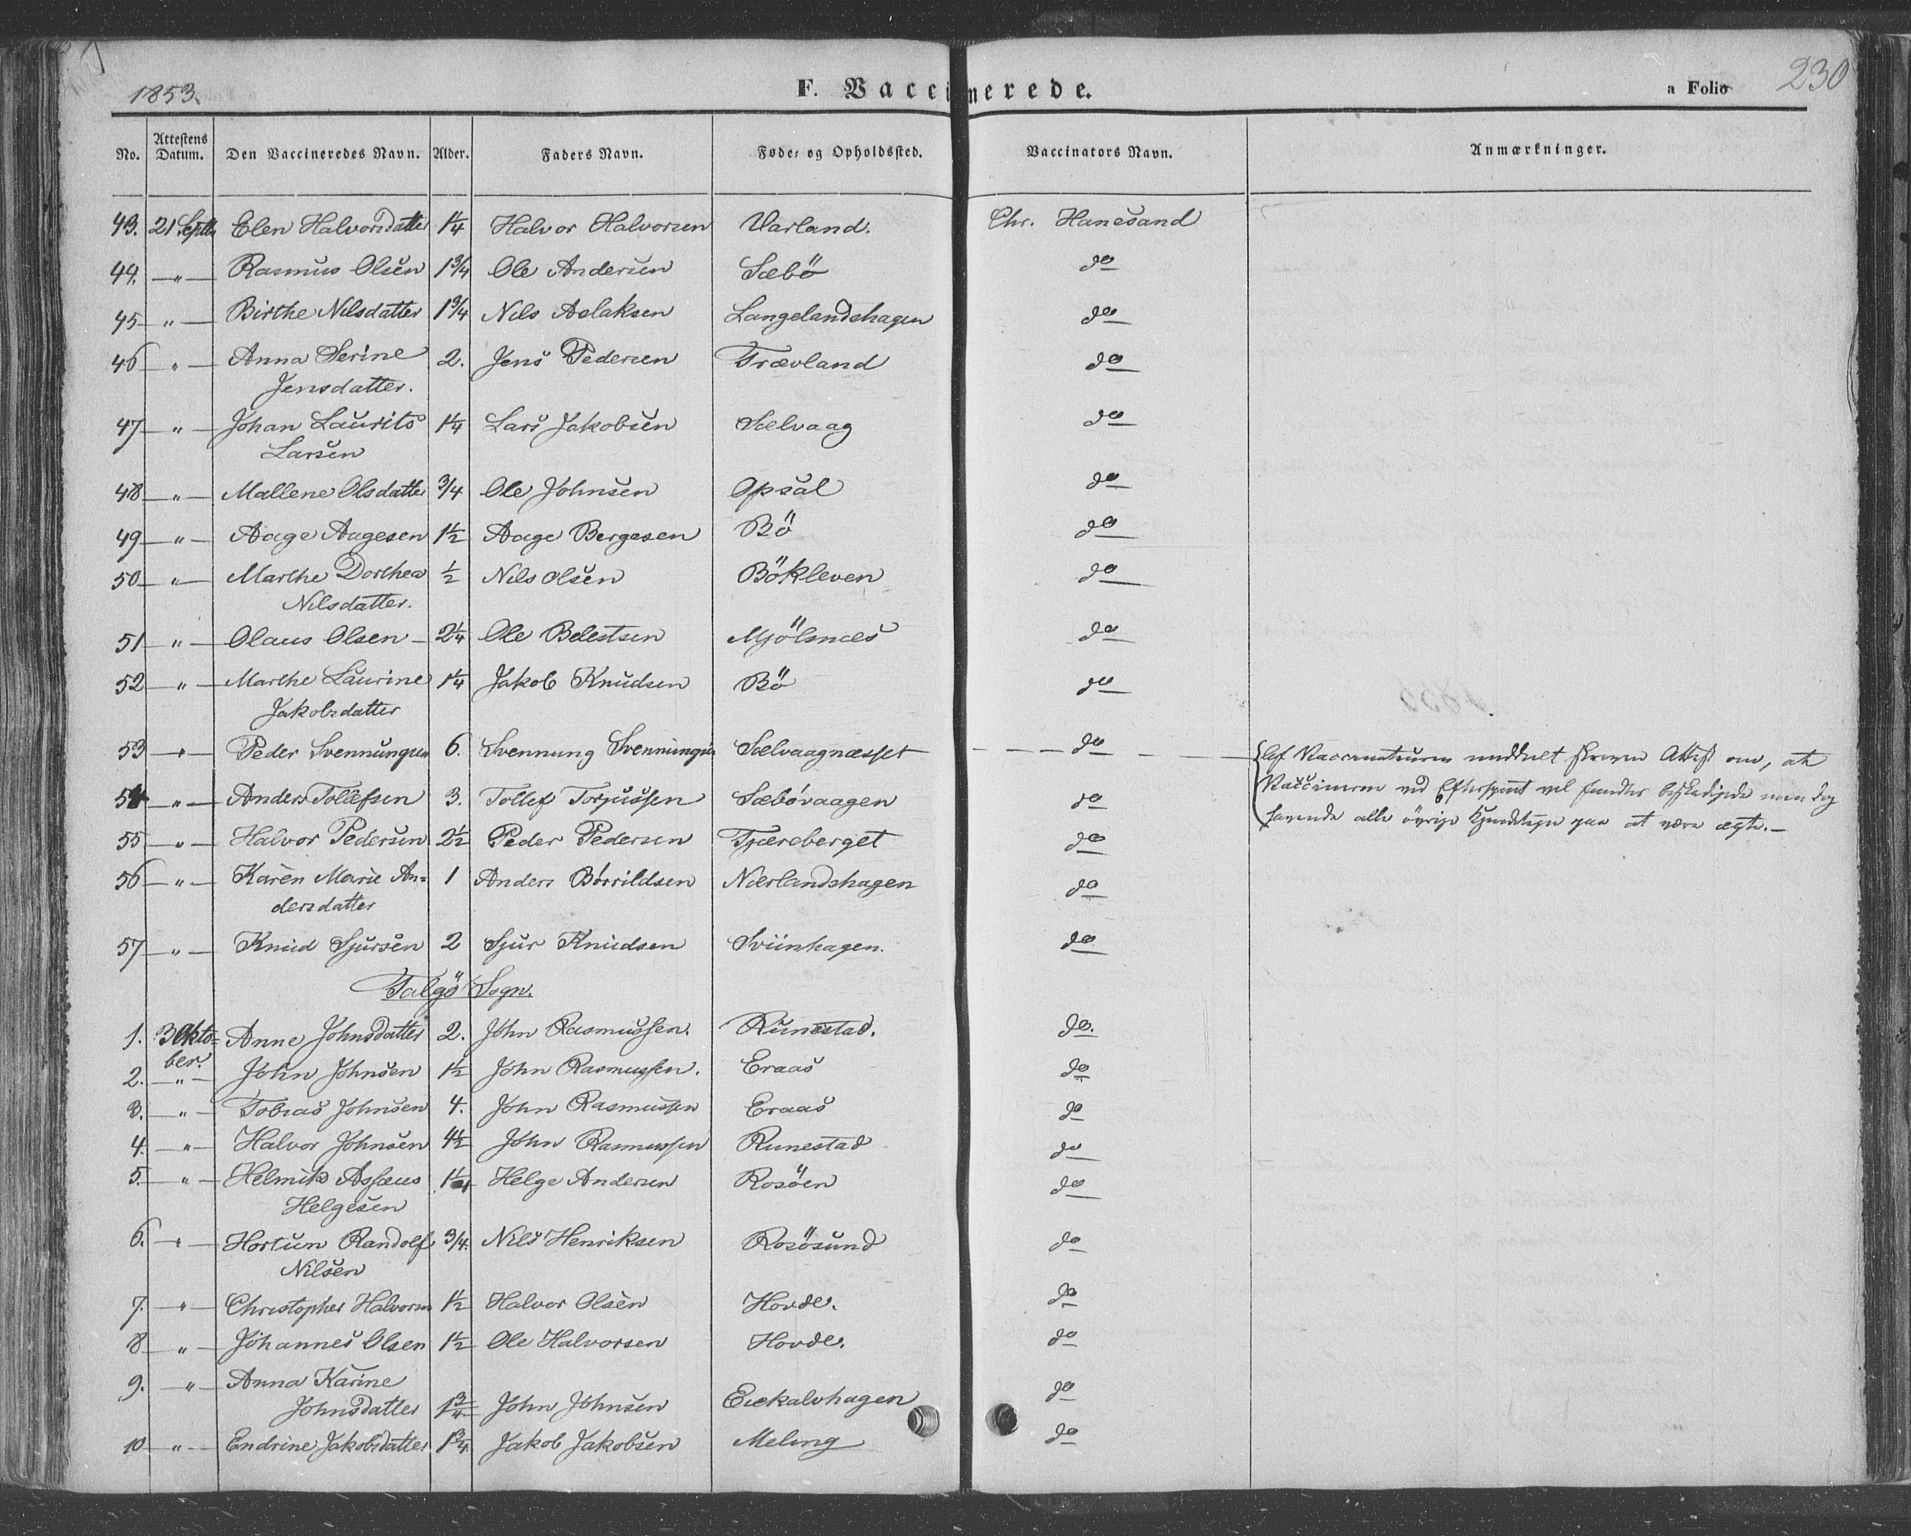 1853. F. Vaccinerede. a Folio 230
No. Attestens Datum. Den Vaccineredes Navn. Alder. Faders Navn. Føde- og Opholdssted. Vaccinators Navn. Anmærkninger.
43. 21 Septbr Elen Halvorsdatter 1¼ Halvor Halvorsen Varland. Chr. Hanesand
44. — " — Rasmus Olsen 1¾ Ole Andersen Sæbö do
45 — " — Birthe Nilsdatter 1¾ Nils Aslaksen Langelandshagen do
46 " — Anna Serine 2. Jens Pedersen Trævland do
Jensdatter.
47 — " — Johan Laurits 1¼ Lars Jakobsen Sælvaag do
Larsen
48 — " — Mallene Olsdatter ¾ Ole Johnsen Opsal do
49 — " — Aage Aagesen 1½ Aage Bergesen Bö do
50 — " — Marthe Dorthea ½ Nils Olsen Bökleven do
Nilsdatter.
51 — " — Olaus Olsen — 2¼ Ole Belestsen Mjölsnæs do
52 — " — Marthe Laurine 1¼ Jakob Knudsen Bö do
Jakobsdatter
53 — " — Peder Svennungsen 6. Svennung Svennungsen Sælvaagnæsset — — — do
Af Vaccinateuren meddelt skreven Attest om, at
54 — " — Anders Tollefsen 3. Tollef Torjussen Sæbövaagen do
Vaccinerne ved Eftersynet vel fandtes beskadigede men dog
havende alle övrige Kjendtegn paa at være ægte. —
55 — " — Halvor Pedersen 2½ Peder Pedersen Tjæreberget do
56 — " — Karen Marie An- 1 Anders Börrildsen Nærlandshagen do
dersdatter
57 — " — Knud Sjursen 2 Sjur Knudsen Sviinhagen. do
Talgö Sogn.
1. 3 Okto- Anne Johnsdatter 2. John Rasmussen. Runestad. do.
ber.
2. — " — John Johnsen 1½ John Rasmussen. Eraas do
3. — " — Tobias Johnsen 4. John Rasmussen Eraas do
4. — " — Halvor Johnsen 4½ John Rasmussen Runestad do
5. " — Helmik Asseus Helge Andersen Rosöen do
Helgesen
6. — " — Hortun Randolf ¾ Nils Henriksen Rosösund do
Nilsen
7. — " — Christopher Halvorsen 1½ Halvor Olsen Hovde. do
8 — " — Johannes Olsen 1½ Ole Halvorsen Hovde. do
9. — " — Anna Karine
Johnsdatter 1¾ John Johnsen Eickalvhagen do
10 — " — Endrine Jakobsdatter 1¾ Jakob Jakobsen Meling do